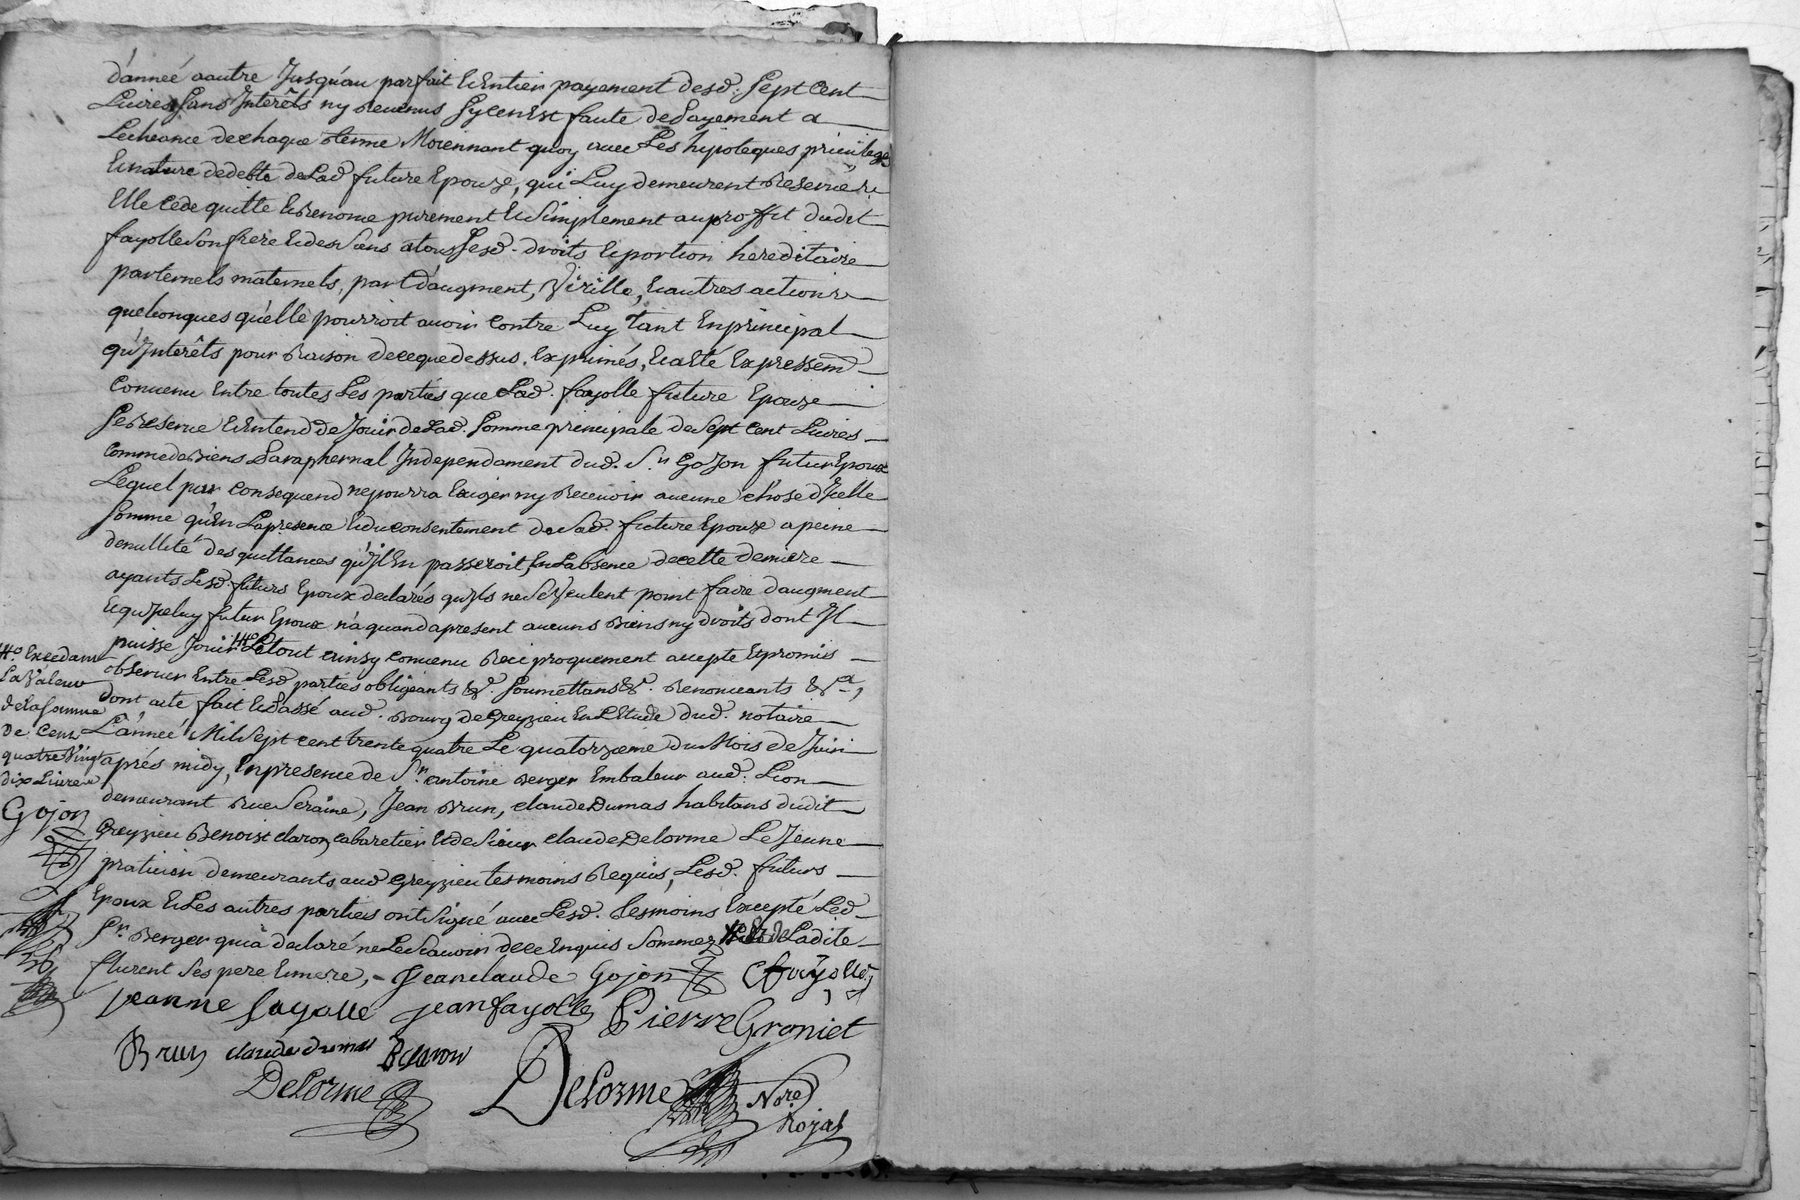 d'anneé aautre Jusqu'au parfait & Entier payement desd. Sept Cent
Livres Sans Interêts ny Revenus Sycenest faute dePayement a
Lecheance dechaque terme Moiennant quoy avec Les hipoteques privileges
& nature dedebte deLad future Epouze, qui Luy demeurent Reservés
Elle Cede quitte & Renonce purement & Simplement auproffit dudit
fayolle Son frere & des Siens atous Sesd. droits & portion hereditaire
parternels maternels, part d'augment, Virille, & autres actions
quelconques quelle pourroit avoir Contre Luy tant Enprincipal
qu'Interêts pour Raison decequedessus. Exprimés, & a Eté Expressem
Convenu Entre toutes Les parties que Lad. fayolle future Epouze
Se Reserve & Entend de Jouir deLad. Somme principale de Sept Cent Livres
Comme de Biens Paraphernal Independament dud. Sr. Gojon futur Epoux
Lequel par Consequend nepourra Exiger ny Recevoir aucune chose d'Icelle
Somme qu'En Lapresence & du consentement de Lad. future Epouze apeine
denullité des quittances qu'Il En passeroit, En Labsence decette derniere
ayants Lesd. futurs Epoux declarés qu'Ils ne Se Veulent point faire daugment
& qu'Iceluy futur Epoux n'a quand apresent aucuns Biens ny droits dont Il
puisse Jouir # Le tout ainsy convenu Reciproquement accepte & promis
observer Entre Lesd parties obligeants &. Soumettans &. Renonceants &a,
dont acte fait & Passé aud. Bourg de Greyzieu En L'Etude dud. notaire
L'anneé Mil Sept cent trente quatre Le quatorzieme du Mois de Juin
aprés midy, En presence de Sr. antoine Berger Embaleur aud. Lion
demeurant Rue Seraine, Jean Brun, claude Dumas habitans dudit
Greyzieu Benoist claron cabaretier & de Sieur claude Delorme Le Jeune
praticien demeurants aud Greyzieu tesmoins Requis, Lesd. futurs
Epoux & Les autres parties ont Signé avec Lesd. tesmoins Excepté Led
Sr. Berger qui a declaré ne Le Scavoir dece Enquis Sommez # & de Ladite
furent Ses pere & mere, - Jean claude Gojon Cfayolle
jeanne fayolle jean fayolle Pierre Groniet
Brun claude dumas B claron
DeLorme DeLorme Nore
Royal
# Excedant
La Valeur
de la somme
De Cent
quatre Vingt
dix Livres
Gojon